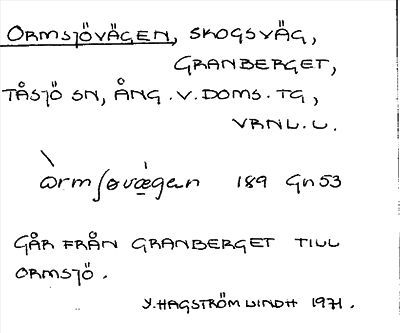 ORMSJÖVÄGEN, SKOGSVÄG,
GRANBERGET,
TÅSJÖ SN, ÅNG.V.DOMS.TG,
VRNL.L.
òrmʃøvæ̀gen 189 Gn53
GÅR FRÅN GRANBERGET TILL
ORMSJÖ.
Y.HAGSTRÖM LINDH 1971.